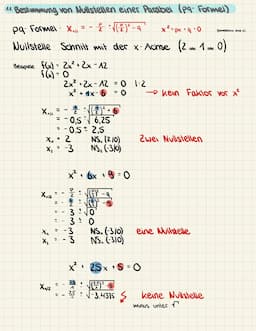 1.1 Bestimmung von Nullstellen einer Parabel (pq-Formel)
pq-Formel x₁,₂ = - p/2 ± √(p/2)² - q x² + px + q = 0
Nullstelle Schnitt mit der x-Achse (2 ... 1 ... 0)
Beispiele f(x) = 2x² + 2x - 12
f(x) = 0
2x² + 2x - 12 = 0 | : 2
x² + 1x - 6 = 0 → kein Faktor vor x²
= -0,5 ± √6,25
= -0,5 ± 2,5
x₁ = 2 NS₁ (2|0) Zwei Nullstellen
x₂ = -3 NS₂ (-3|0)
x² + 6x + 9 = 0
= -3 ± √0
= -3 ± 0
x₁ = -3 NS₁ (-3|0) eine Nullstelle
x₂ = -3 NS₂ (-3|0)
x² + 2,5x + 5 = 0
x₁/₂ =
keine Nullstelle
minus unter √